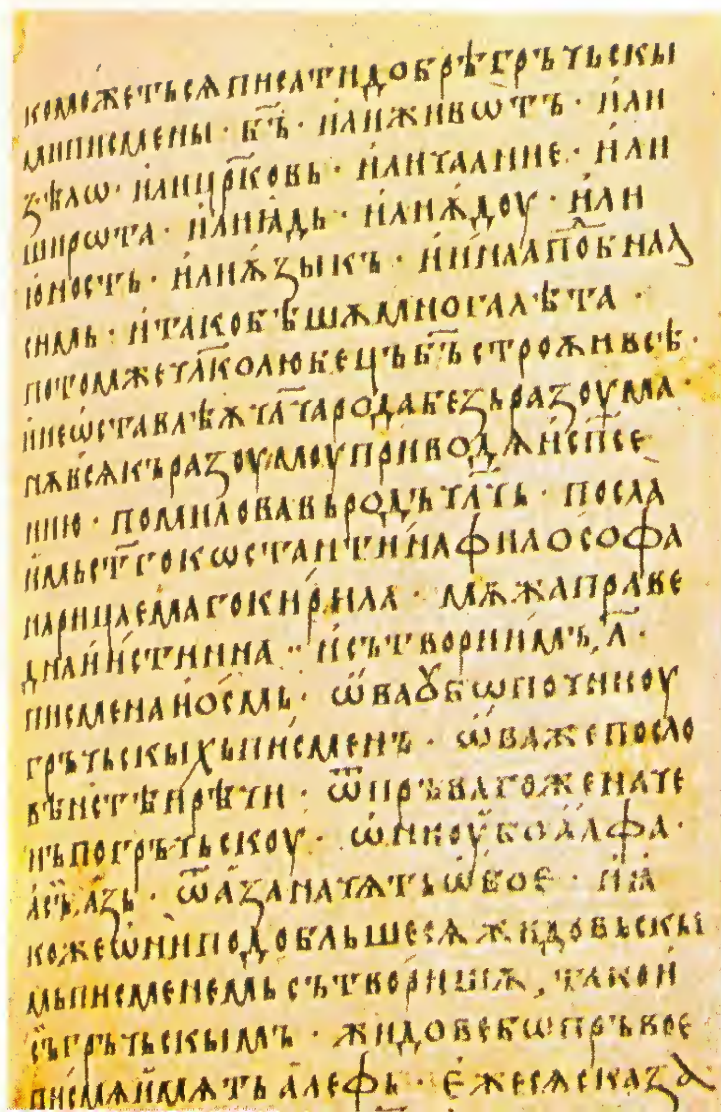 коможетьсѧписатидобрѣгръчьскы
мипи́смены · б҃ъ · и́лиживѡ́тъ · и́ли
ѕѣлѡ · и́лицр҃ковь · и́личаание · и́ли
широта · и́лиꙗ́дь · и́лиѫ́доу · и́ли
ю́ность · и́лиѫ́зыкъ · и́и́наапо́бнаа
симь · и́такобѣшѫмногалѣта ·
потомжечл҃колюбецъб҃ъстроѫивсѣ ·
ине́ѡставлѣѫчл҃чародабезьразоума ·
нѫвсѧкъразоумоуприводѧи́сп҃се
нию · помиловавьродъчл҃чь · посла
и́мьст҃гокѡстантинафилософа
нарицаемагокирила · мѫжаправе
днаии́стинна · и́сътвории́мъ, л҃ ·
писменаио́смь · ѡ҆ваꙋбѡпочиноу
гръчьскыхьписменъ · ѡ҆важепосло
вѣнстѣирѣчи · ѿпръвагоженаче
нъпогръчьскоу · ѡ҆нио́убоа́лфа ·
асеа́зь · ѿа́заначѧтъѡ҆бое · и́ꙗ́
коже́ѡниподобльшесѧжидовьскы
мьписменемьсътворишѫ, такои́
съгръчьскымъ · жидовебѡпръвое
писмѧи́мѫтьа́лефь · е́жесѧсказа